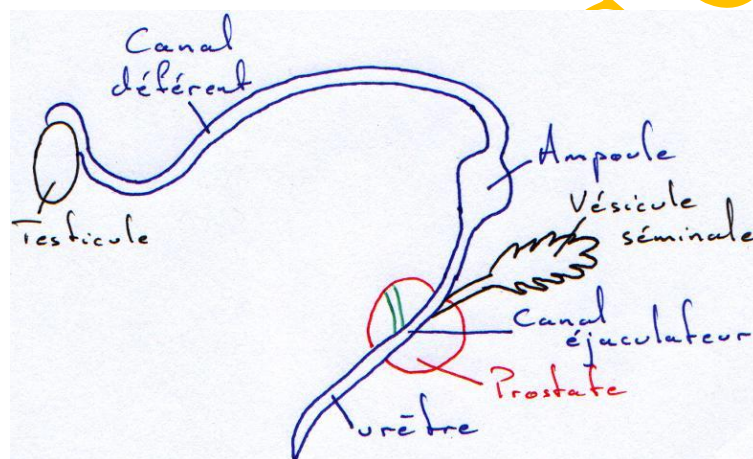 Canal
déférent
Ampoule
Testicule
Vésicule
séminale
Canal
éjaculateur
Prostate
urètre